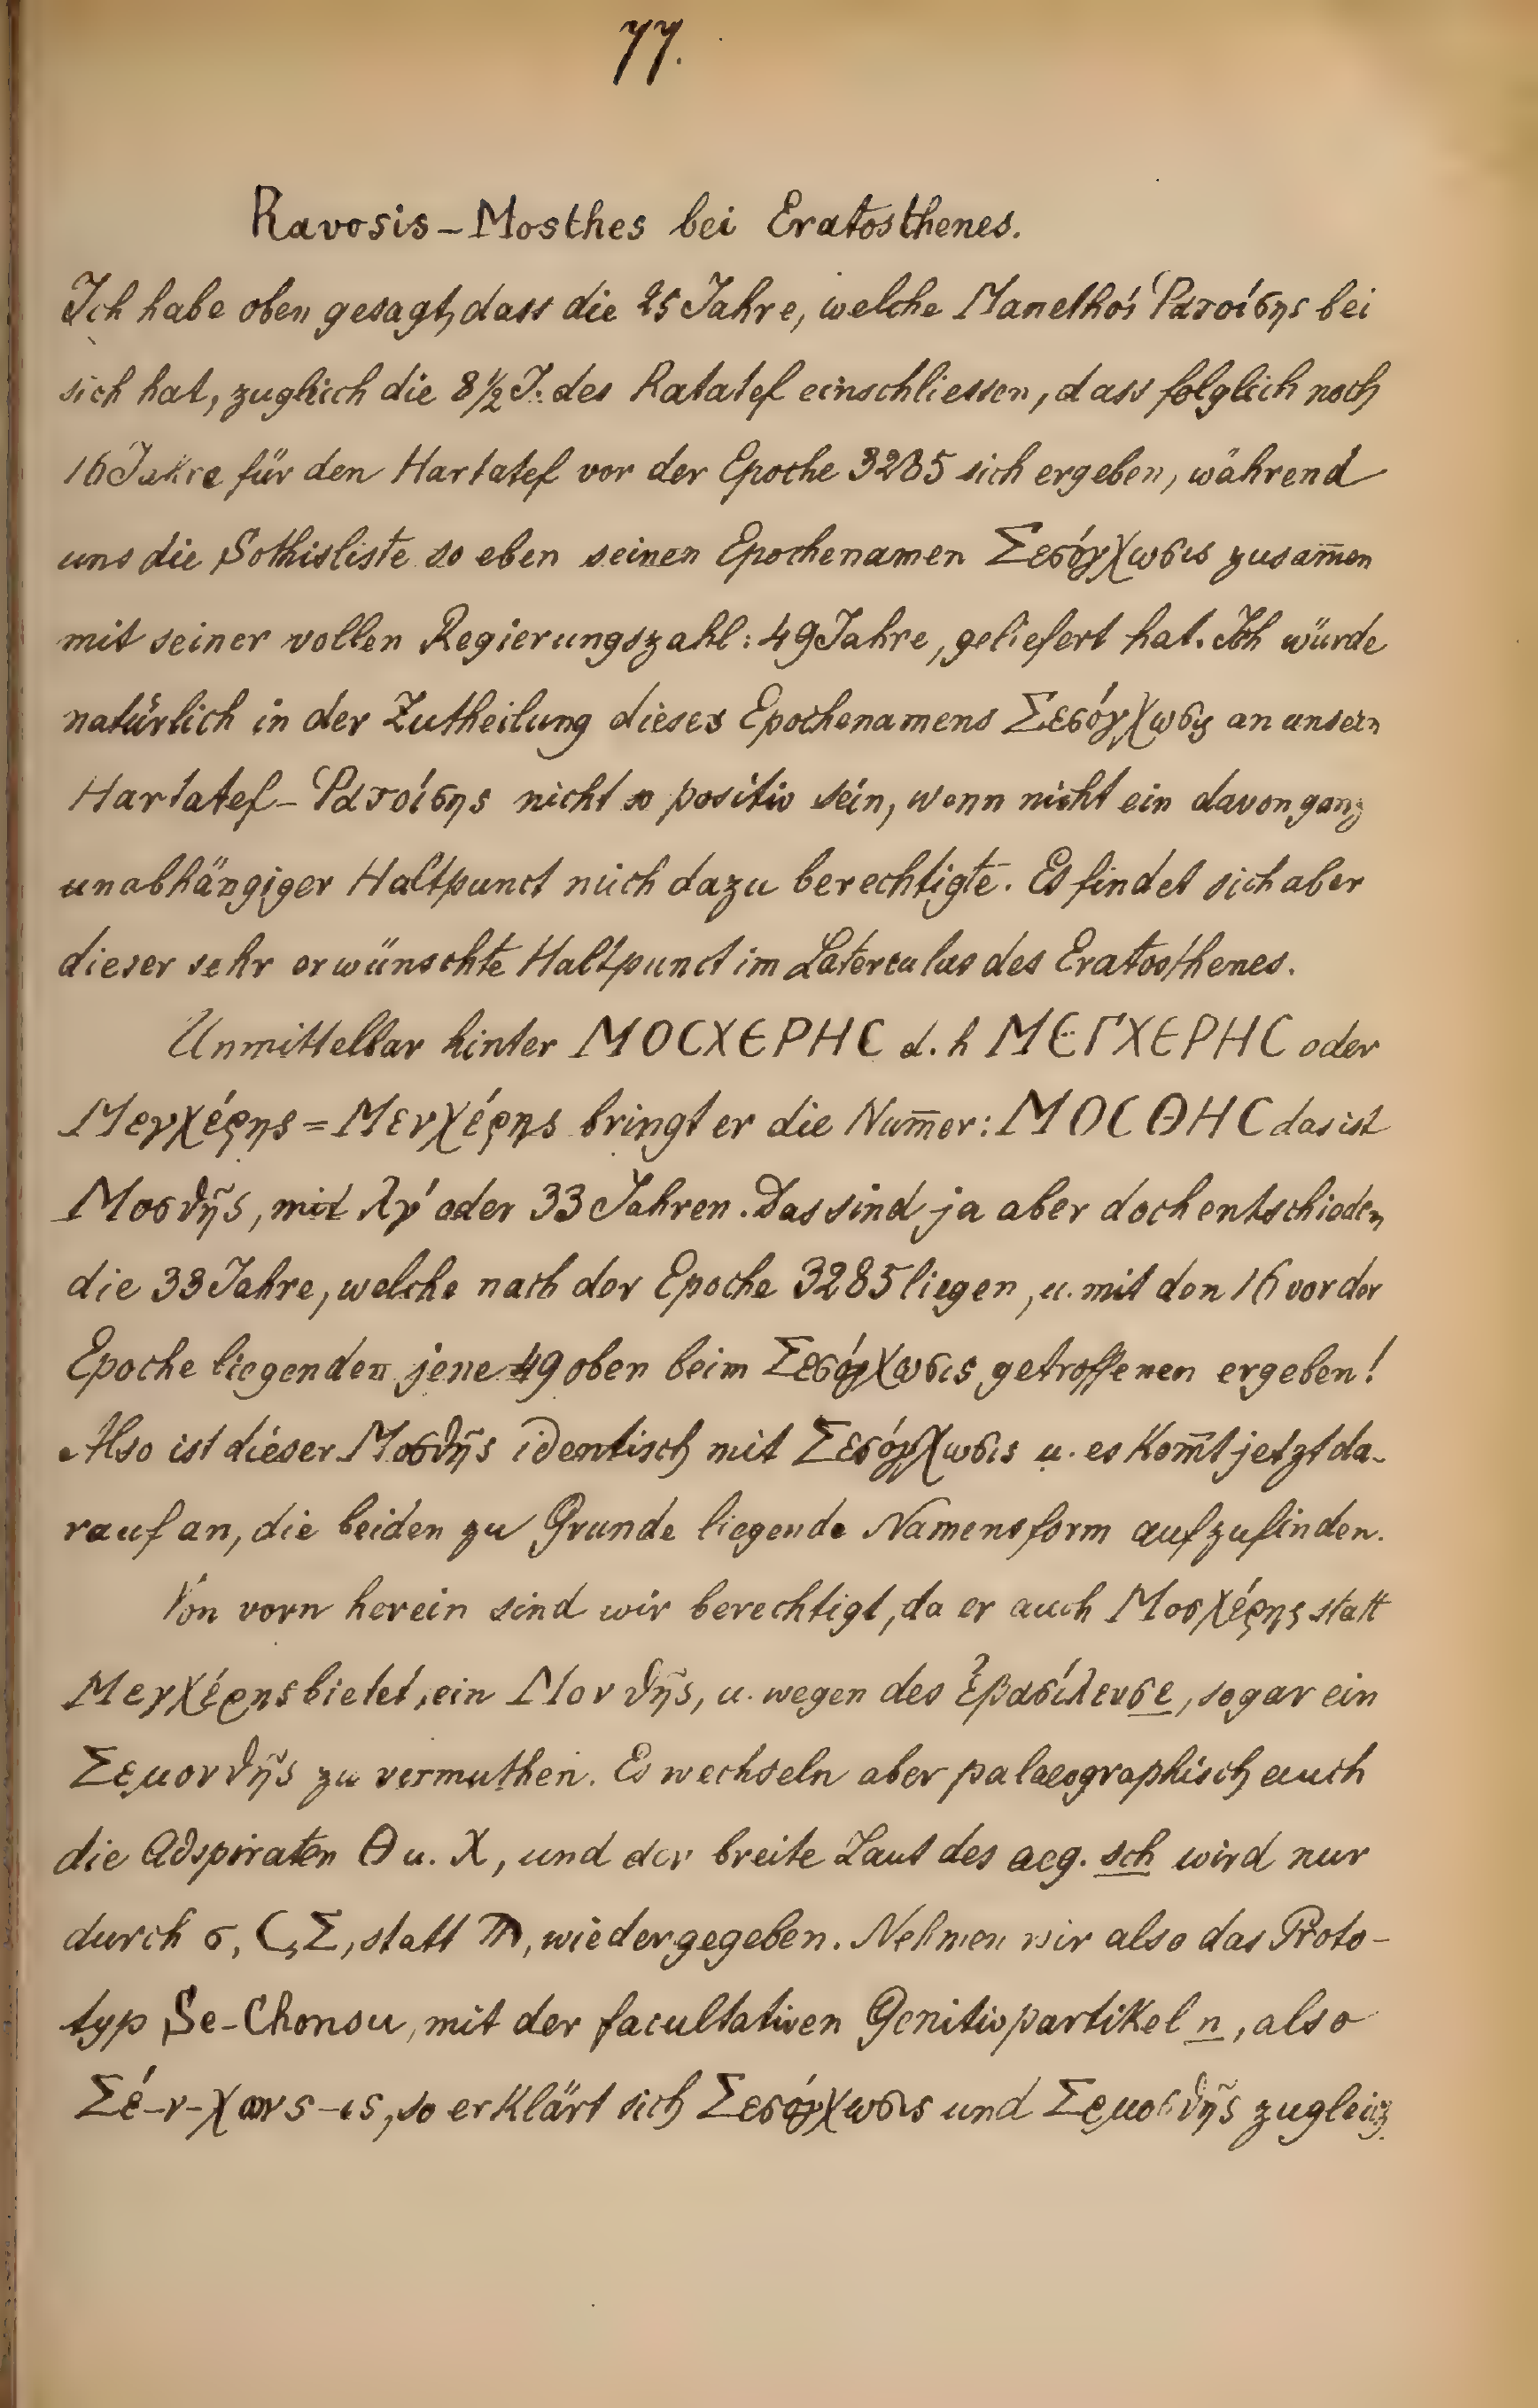 77.
Ravosis-Mosthes bei Eratosthenes.
Ich habe oben gesagt, dass die 25 Jahre, welche Manetho's Ῥατοίσης bei
sich hat, zugleich die 8½ J. des Ratatef einschliessen, dass folglich noch
16 Jahre für den Hartatef vor der Epoche 3285 sich ergeben, während
uns die Sothisliste so eben seinen Epochenamen Σεσόγχωσις zusam̄en
mit seiner vollen Regierungszahl: 49 Jahre, geliefert hat. Ich würde
natürlich in der Zutheilung dieses Epochenamens Σεσόγχωσις an unsern
Hartatef-Ῥατοίσης nicht so positiv sein, wenn nicht ein davon ganz
unabhängiger Haltpunct mich dazu berechtigte. Es findet sich aber
dieser sehr erwünschte Haltpunct im Laterculus des Eratosthenes.
Unmittelbar hinter ΜΟCΧΕΡΗC d. h ΜΕΓΧΕΡΗC oder
Μεγχέρης = Μενχέρης bringt er die Num̄er: ΜΟCΘΗC das ist
Μοσθῆς, mit λγ' oder 33 Jahren. Das sind ja aber doch entschieden
die 33 Jahre, welche nach der Epoche 3285 liegen, u. mit den 16 vor der
Epoche liegenden jene 49 oben beim Σεσόγχωσις getroffenen ergeben!
Also ist dieser Μοσθῆς identisch mit Σεσόγχωσις u. es kom̄t jetzt da-
rauf an, die beiden zu Grunde liegende Namensform aufzufinden.
Von vorn herein sind wir berechtigt, da er auch Μοσχέρης statt
Μεγχέρης bietet, ein Μονθῆς, u. wegen des ἐβασίλευσε, sogar ein
Σεμονθῆς zu vermuthen. Es wechseln aber palaeographisch auch
die Adspiraten Θ u. Χ, und der breite Laut des aeg. sch wird nur
durch σ, C, Σ, statt ϡ, wiedergegeben. Nehmen wir also das Proto-
typ Se-Chonsu, mit der facultativen Genitivpartikel n, also
Σέ-ν-χωνς-ις, so erklärt sich Σεσόγχωσις und Σεμοσθῆς zugleich